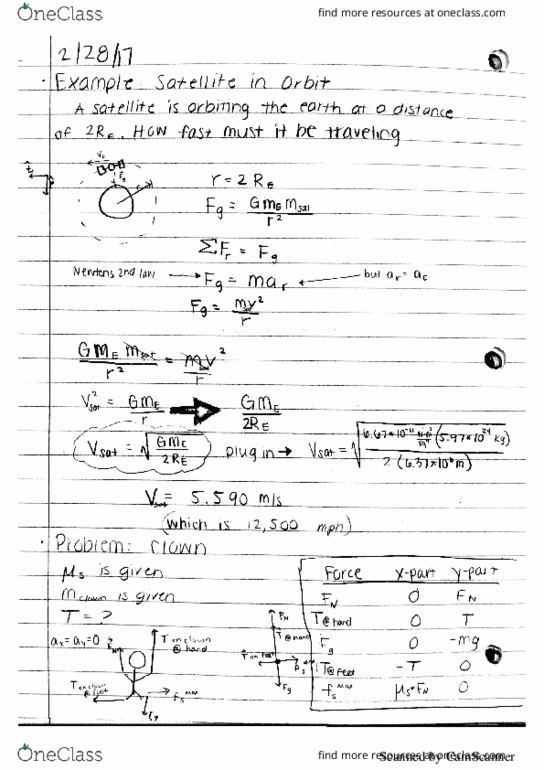 OneClass
find more resources at oneclass.com
2/28/17
· Example: Satellite in Orbit
A satellite is orbiting the earth at a distance
of 2RE. How fast must it be traveling
r = 2 RE
Fg = GmE msat / r²
ΣFr = Fg
Newtons 2nd law → Fg = mar ← but ar = ac
Fg = mv² / r
GmE msat / r² = msat v² / r
Vsat² = GmE / r → GmE / 2RE
Vsat = √(GmE / 2RE) plug in → Vsat = √(6.67*10⁻¹¹ (5.97*10²⁴ kg) / 2(6.37*10⁶ m))
Vsat = 5.590 m/s
(which is 12,500 mph)
· Problem: Clown
μs is given
mclown is given
T = ?
ax = ay = 0
T on clown @ hand
T on clown @ feet
fs max
Fg
FN
T @ hand
T on feet
Fg
Force x-part y-part
FN 0 FN
T@ hand 0 T
Fg 0 -mg
T@ feet -T 0
fs max μs*FN 0
OneClass
find more resources at oneclass.com
Scanned by CamScanner